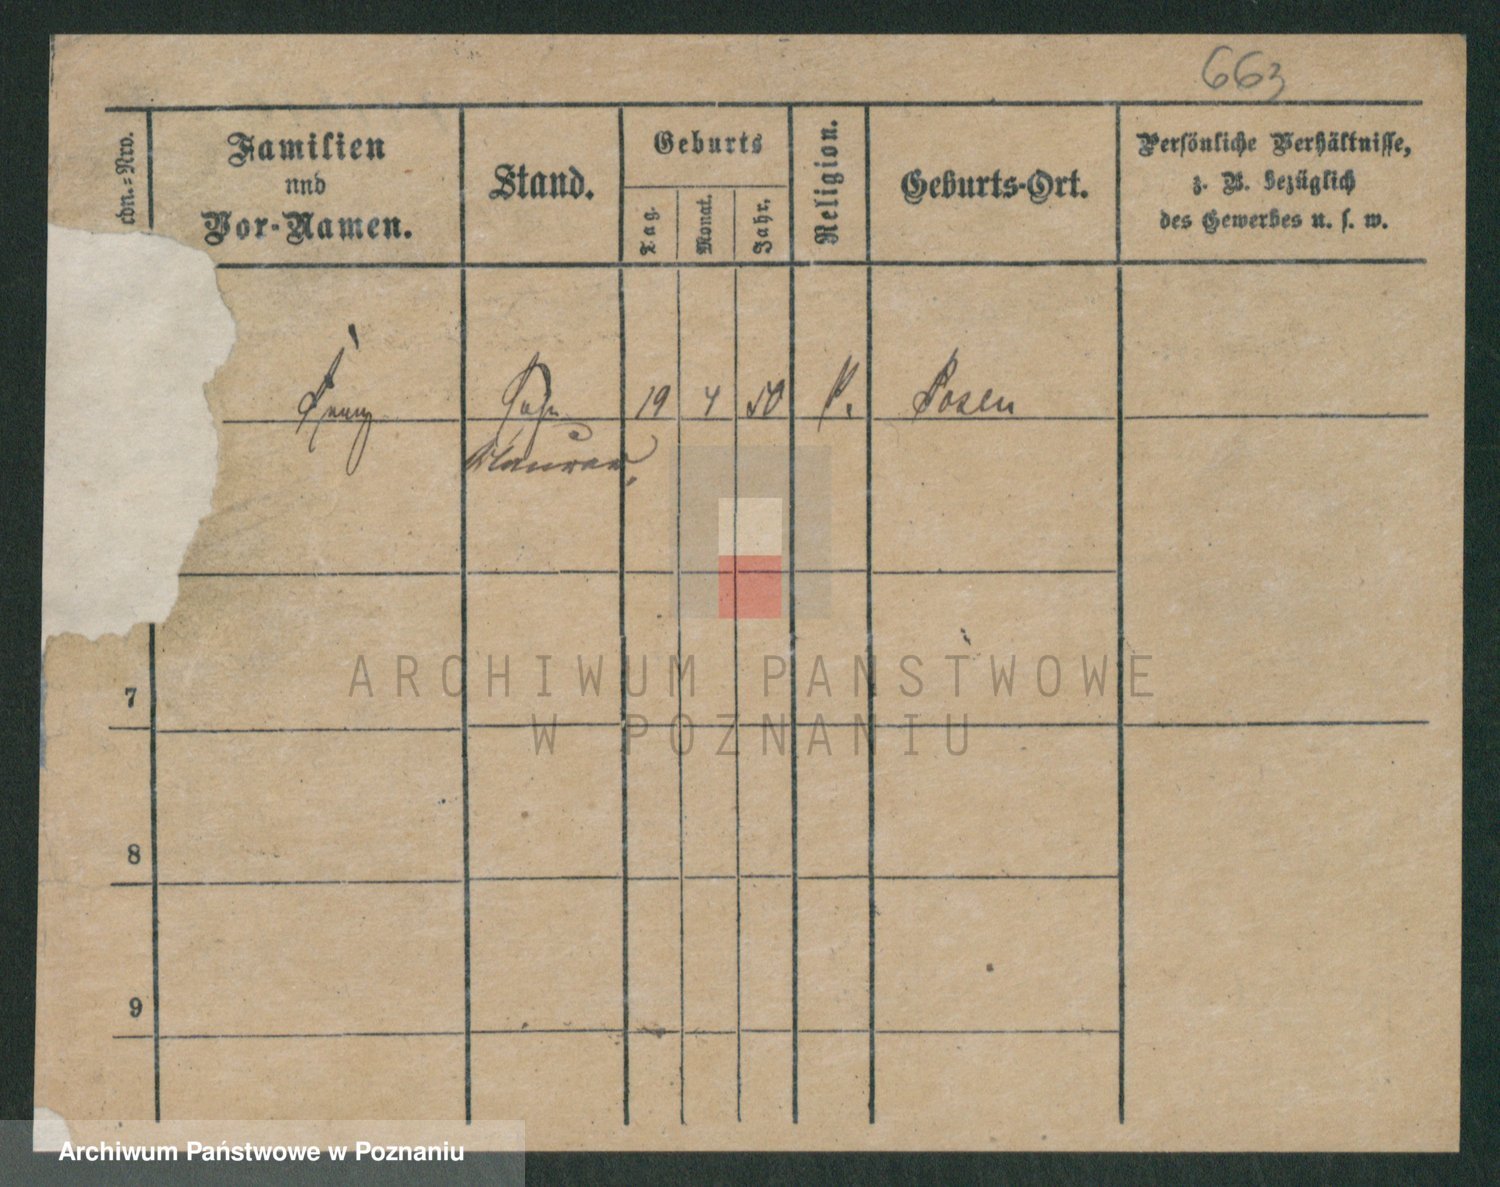 663
rdn.=Nro.
Familien
nnd
Vor-Namen.
Stand.
Geburts
Tag.
Monat.
Jahr.
Religion.
Geburts-Ort.
Persönliche Verhältnisse,
z. B. bezüglich
des Gewerbes u. s. w.
Franz Sohn 19 4 50 P. Posen
Maurer,
7
8
9
ARCHIWUM PAŃSTWOWE
W POZNANIU
Archiwum Państwowe w Poznaniu